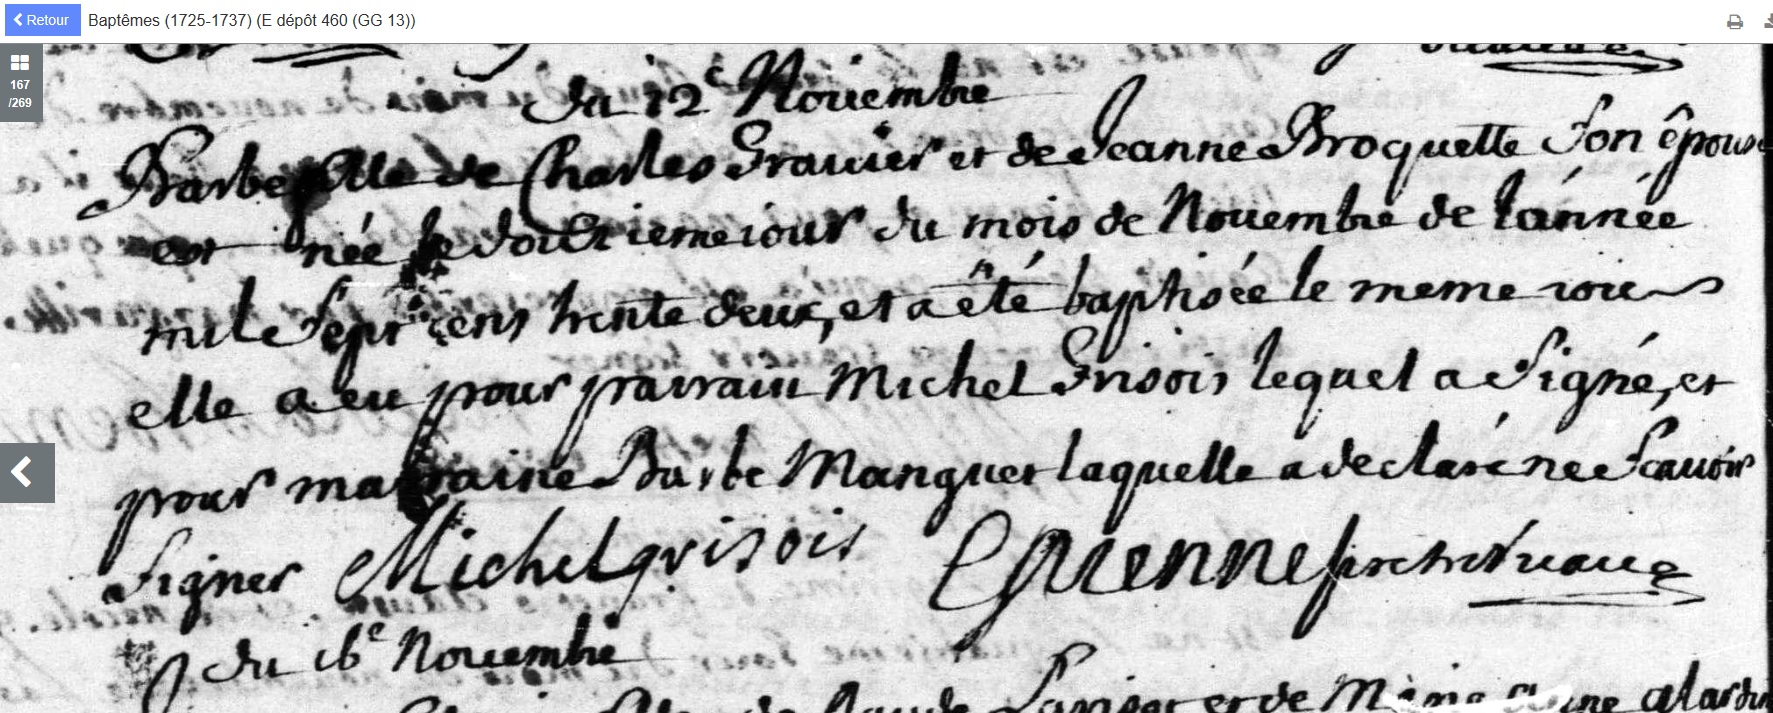 Retour Baptêmes (1725-1737) (E dépôt 460 (GG 13))
167
/269
du 12e Novembre
Barbe fille de Charles Gravier et de Jeanne Broquette son épouse
est née le douzieme iour du mois de Novembre de l'année
mile sept cens trente deux, et a été baptisée le meme iour
elle a eu pour parrain Michel Grisois lequel a signé, et
pour maraine Barbe Manguet laquelle a declaré ne scavoir
signer Michel grisois prestre vicaire
du 16e Novembre
de et de